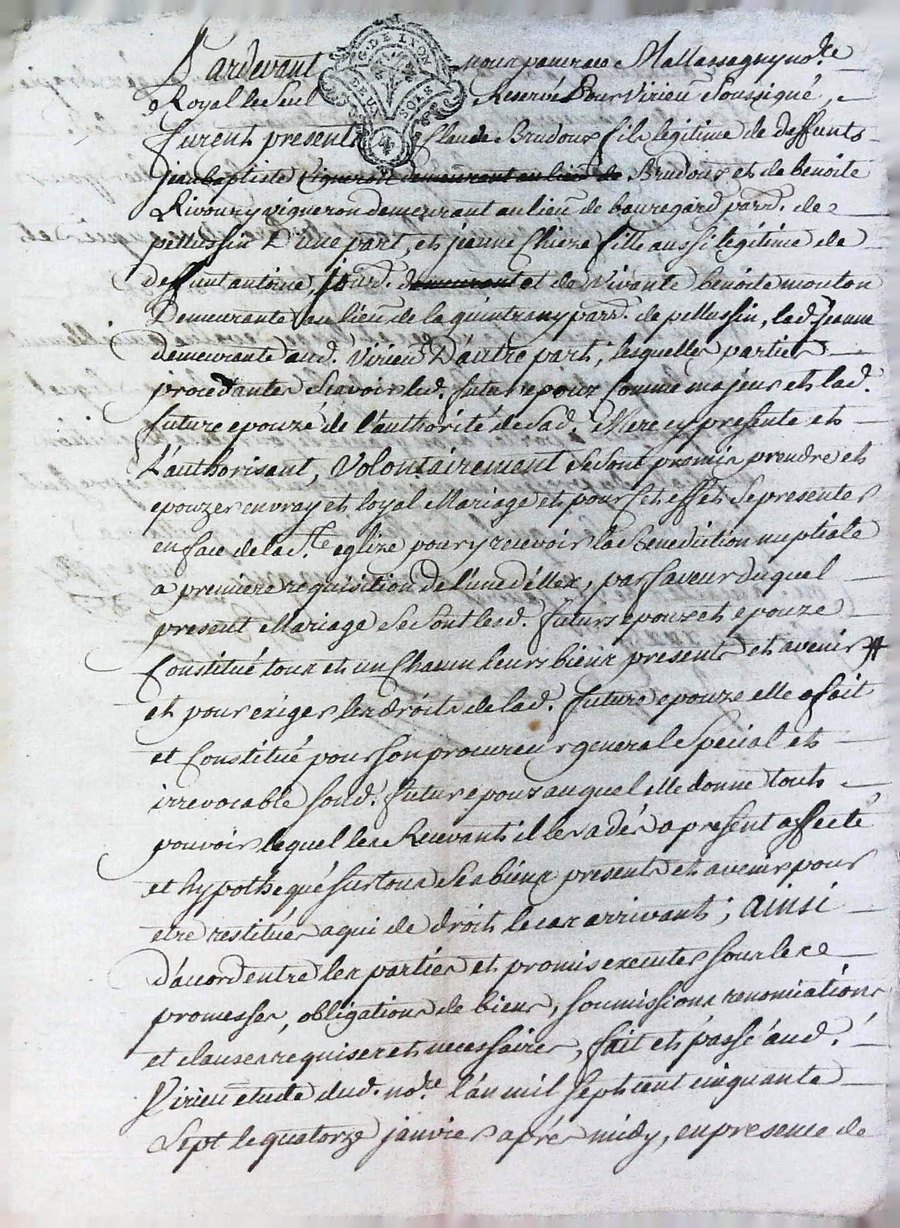 Pardevant nous pancrace Mallassagny no.re
Royal le seul Reservé Pour Virieu Soussigné,
G. DE LYON
DEUX SOLS
4
furent presents Claude Brudoux fils legitime de deffunts
jean baptiste vigneron demeurant au lieu de Brudoux et de benoite
Rivoury vigneron demeurant au lieu de beauregard parr. de
pellussin d'une part, et jeanne Chieze fille aussi legitime de
deffunt antoine, jourd. demeurant et de vivante benoite mouton
Demeurante au lieu de la quintrany parr. de pellussin, lad. jeanne
demeurante aud. Virieu d'autre part; lesquelles parties
procedantes scavoir led. futur epoux comme majeur et lad.
future epouze de l'authorité de sad. Mere cy presente et
L'authorisant, Volontairement se sont promis prendre et
epouzer en vray et loyal Mariage et pour cet effet se presenter
en face de la S.te eglize pour y recevoir la Benediction nuptiale
a premiere requisition de l'une d'elles, par faveur duquel
present Mariage se sont lesd. futurs epoux et epouze
Constitué tous et un Chacun leurs biens presents et avenir #
et pour exiger les droits de lad. future epouze elle a fait
et Constitué pour son procureur general special et
irrevocable sond. futur epoux auquel elle donne tout
pouvoir lequel les Recevant il les a dés a present affecté
et hypothequé sur tous ses biens presents et avenir pour
etre restitués a qui de droit le cas arrivant; ainsi
d'accord entre les parties et promis executer sous les
promesses, obligations de biens, soumissions renonciations
et clauses requises et necessaires, fait et passé aud.
Virieu etude dud. no.re l'an mil sept cent cinquante
Sept le quatorze janvier aprés midy, en presence de